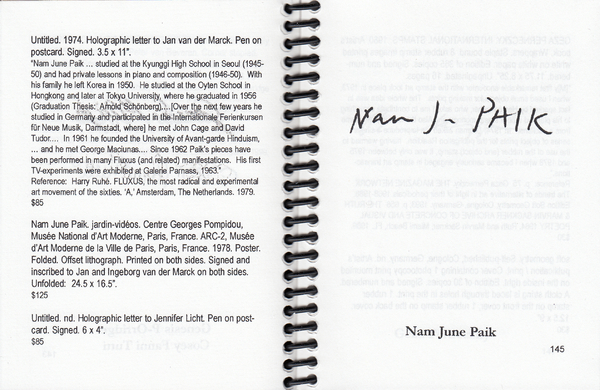 Untitled. 1974. Holographic letter to Jan van der Marck. Pen on
postcard. Signed. 3.5 x 11".
"Nam June Paik ... studied at the Kyunggi High School in Seoul (1945-
50) and had private lessons in piano and composition (1946-50). With
his family he left Korea in 1950. He studied at the Oyten School in
Hongkong and later at Tokyo University, where he graduated in 1956
(Graduation Thesis: 'Arnold Schönberg)...[Over the next few years he
studied in Germany and participated in the Internationale Ferienkursen
für Neue Musik, Darmstadt, where] he met John Cage and David
Tudor.... In 1961 he founded the University of Avant-garde Hinduism,
... and he met George Maciunas.... Since 1962 Paik's pieces have
been performed in many Fluxus (and related) manifestations. His first
TV-experiments were exhibited at Galerie Parnass, 1963."
Reference: Harry Ruhé. FLUXUS, the most radical and experimental
art movement of the sixties. 'A,' Amsterdam, The Netherlands. 1979.
$85
Nam June Paik. jardin-vidéos. Centre Georges Pompidou,
Musée National d'Art Moderne, Paris, France. ARC-2, Musée
d'Art Moderne de la Ville de Paris, Paris, France. 1978. Poster.
Folded. Offset lithograph. Printed on both sides. Signed and
inscribed to Jan and Ingeborg van der Marck on both sides.
Unfolded: 24.5 x 16.5".
$125
Untitled. nd. Holographic letter to Jennifer Licht. Pen on post-
card. Signed. 6 x 4".
$85
Nam J- PAIK
Nam June Paik
145